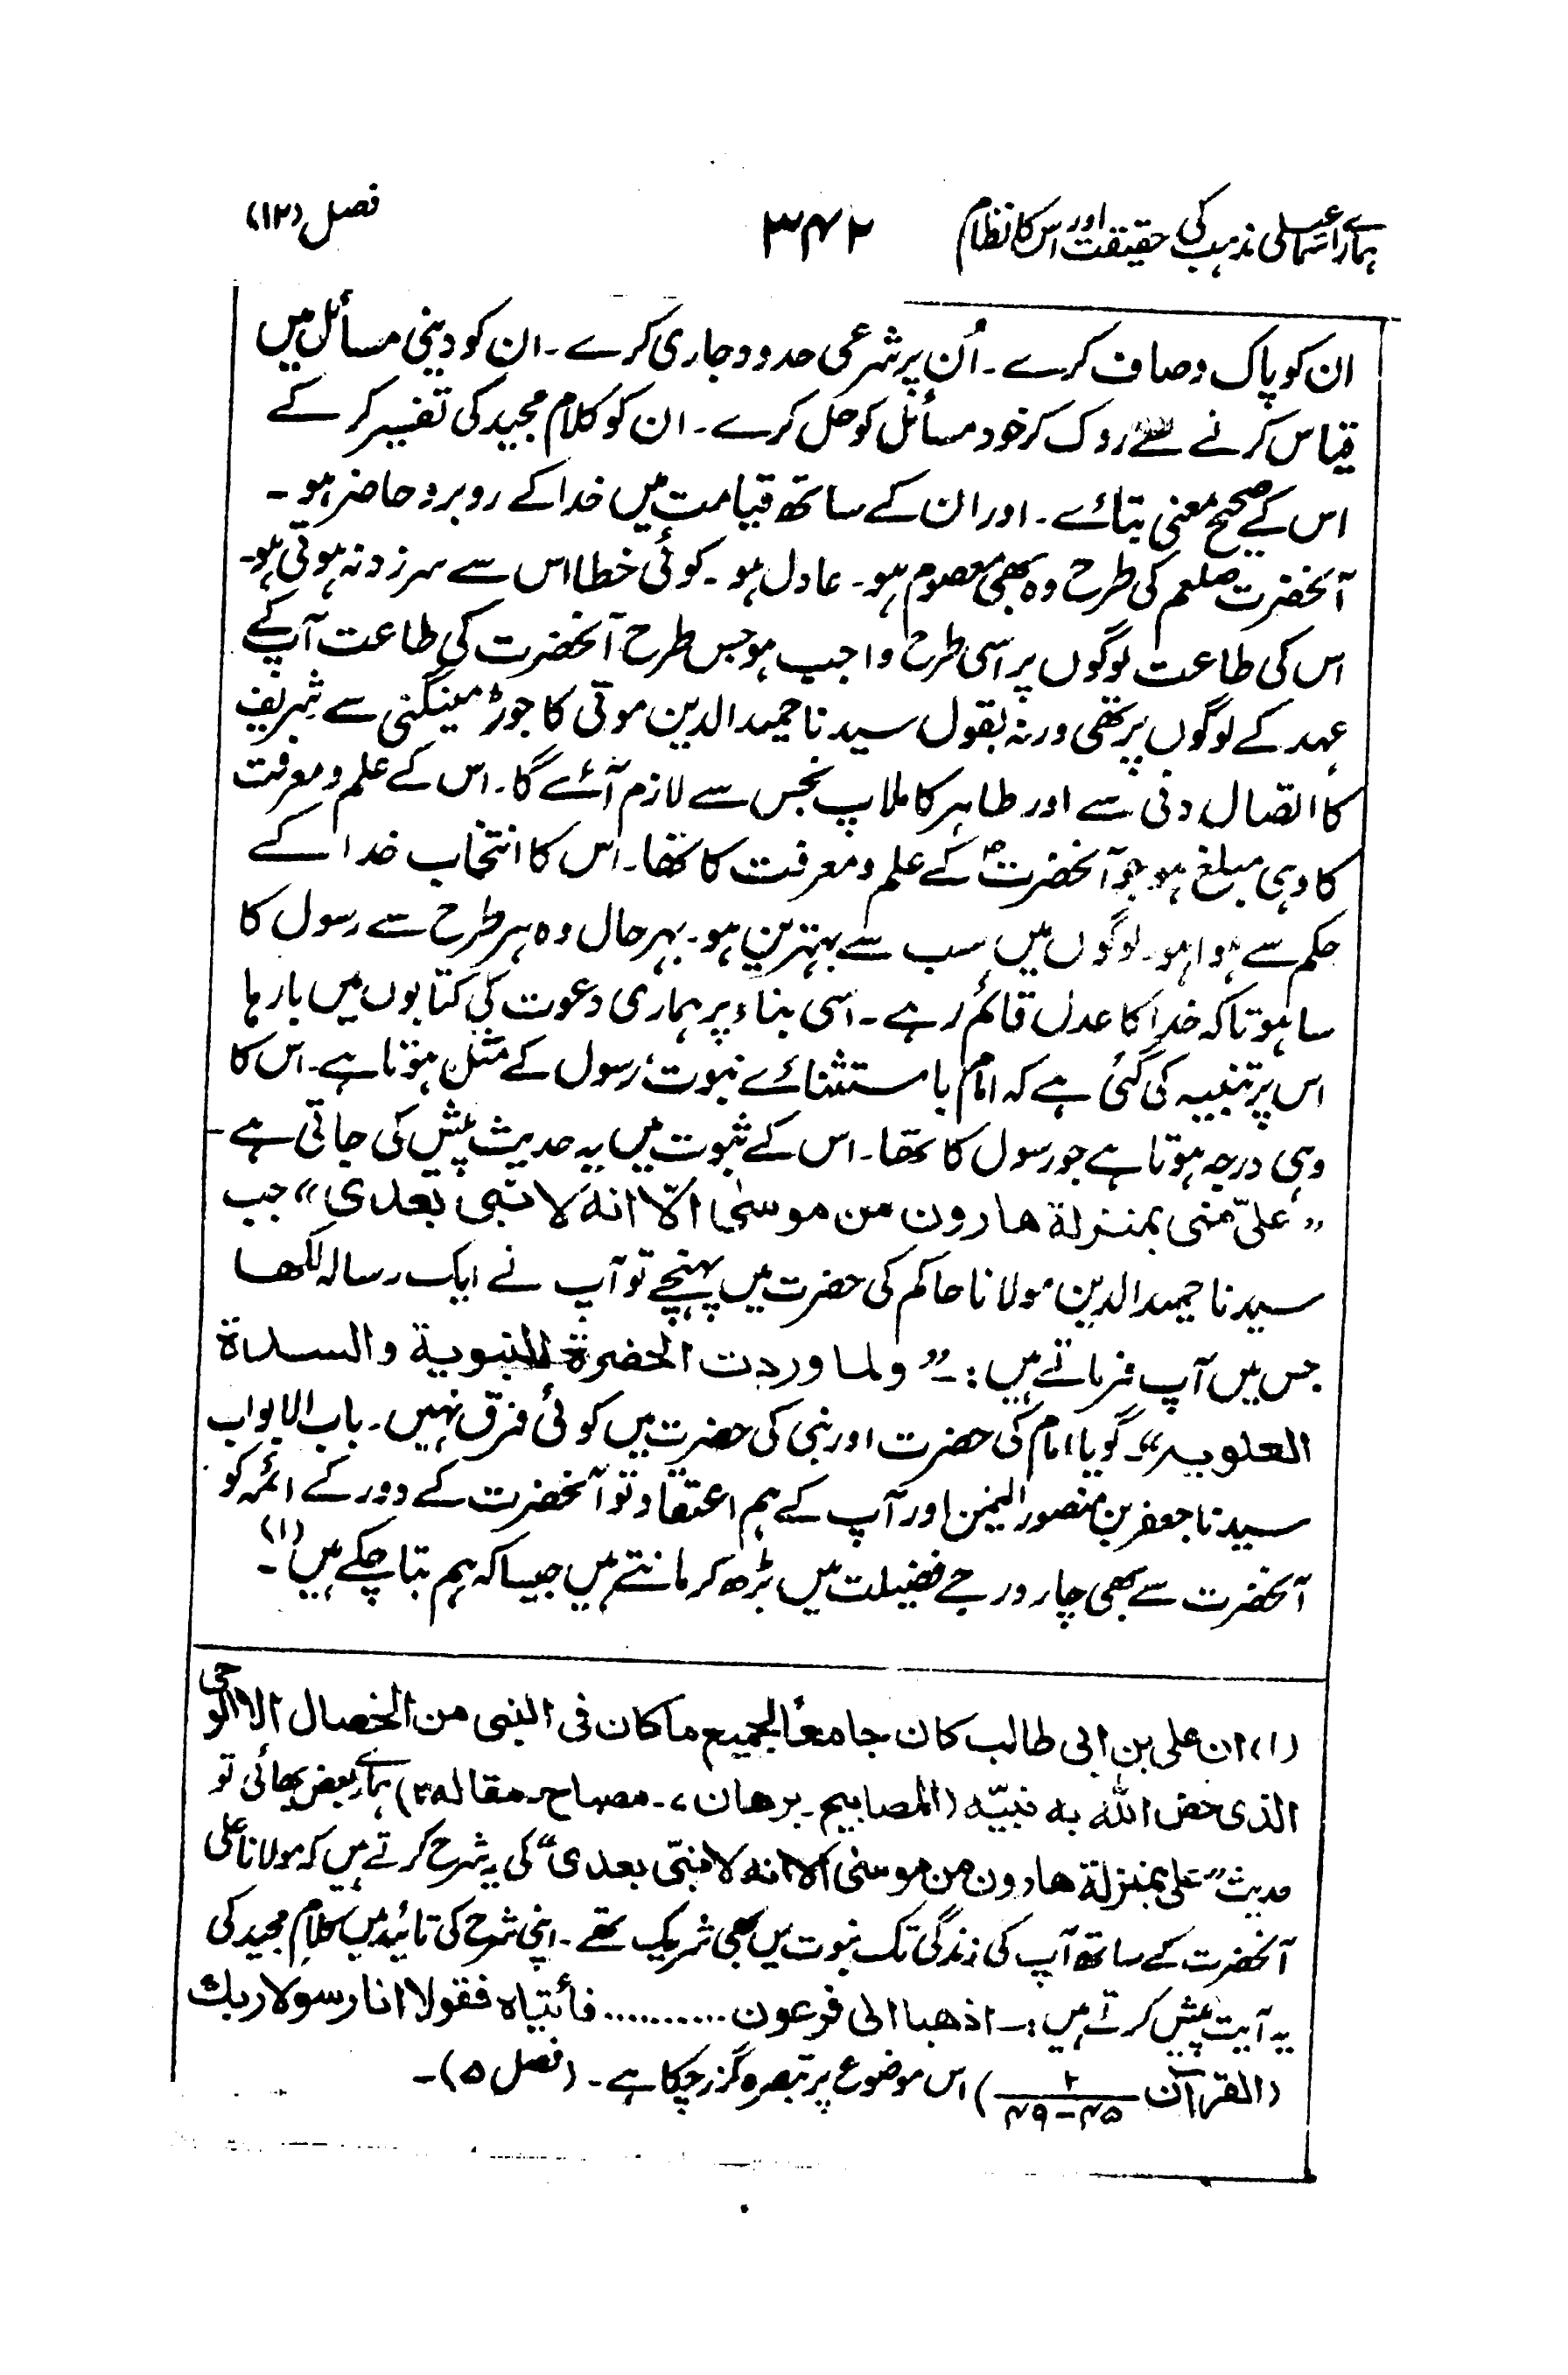 ہمارے اسماعیلی مذہب کی حقیقت اور اس کا نظام ۳۴۲ فصل (۱۲)
ان کو پاک و صاف کرے ۔ اُن پر شرعی حدود جاری کرے ۔ ان کو دینی مسأئل میں
قیاس کرنے سے روک کر خود مسأئل کو حل کرے ۔ ان کو کلام مجید کی تفسیر کر کے
اس کے صحیح معنی بتائے ۔ اور ان کے ساتھ قیامت میں خدا کے روبرو حاضر ہو ۔
آنحضرت صلعم کی طرح وہ بھی معصوم ہو ۔ عادل ہو ۔ کوئی خطا اس سے سرزد نہ ہوتی ہو۔
اس کی طاعت لوگوں پر اسی طرح واجب ہو جس طرح آنحضرت کی طاعت آپ کے
عہد کے لوگوں پر تھی ورنہ بقول سیدنا حمید الدین موتی کا جوڑ مینگنی سے شریف
کا اتصال دنی سے اور طاہر کا ملاپ نجس سے لازم آئے گا ۔ اس کے علم و معرفت
کا وہی مبلغ ہو جو آنحضرتؐ کے علم و معرفت کا تھا ۔ اس کا انتخاب خدا کے
حکم سے ہوا ہو ۔ لوگوں میں سب سے بہترین ہو ۔ بہرحال وہ ہر طرح سے رسول کا
سا ہو تاکہ خدا کا عدل قائم رہے ۔ اسی بناء پر ہماری دعوت کی کتابوں میں بارہا
اس پر تنبیہ کی گئی ہے کہ امام با ستثنائے نبوت رسول کے مثل ہوتا ہے ۔ اس کا
وہی درجہ ہوتا ہے جو رسول کا تھا ۔ اس کے ثبوت میں یہ حدیث پیش کی جاتی ہے ـ
”علیّ منی بمنزلة هارون من موسیٰ الّا انه لا نبی بعدی“ جب
سیدنا حمید الدین مولانا حاکم کی حضرت میں پہنچے تو آپ نے ایک رسالہ لکھا
جس میں آپ فرماتے ہیں :۔ ”ولما وردت الحضرة النبویة والسدة
العلویہ“۔ گویا امام کی حضرت اور نبی کی حضرت میں کوئی فرق نہیں ۔ باب الابواب
سیدنا جعفر بن منصور الیمن اور آپ کے ہم اعتقاد تو آنحضرت کے دور کے ائمہ کو
آنحضرت سے بھی چار درجے فضیلت میں بڑھ کر مانتے ہیں جیسا کہ ہم بتا چکے ہیں (۱)۔
(۱) ان علی بن ابی طالب کان جامعًا لجمیع ما کان فی النبی من الخصال الا الوحی
الذی خص الله به نبیّه (المصابیح۔ برهان ۷۔ مصباح۔ مقاله ۲) ہمارے بعض بھائی تو
حدیث ”علی بمنزلة هارون من موسیٰ الا انه لا نبیّ بعدی“ کی یہ شرح کرتے ہیں کہ مولانا علی
آنحضرت کے ساتھ آپ کی زندگی تک نبوت میں بھی شریک تھے ۔ اپنی شرح کی تائید میں کلام مجید کی
یہ آیت پیش کرتے ہیں :۔ اذهبا الی فرعون .......... فأتیاه فقولا انا رسولا ربك
(القرآن ۲/۴۵-۴۹) اس موضوع پر تبصرہ گزر چکا ہے ۔ (فصل ۵)۔